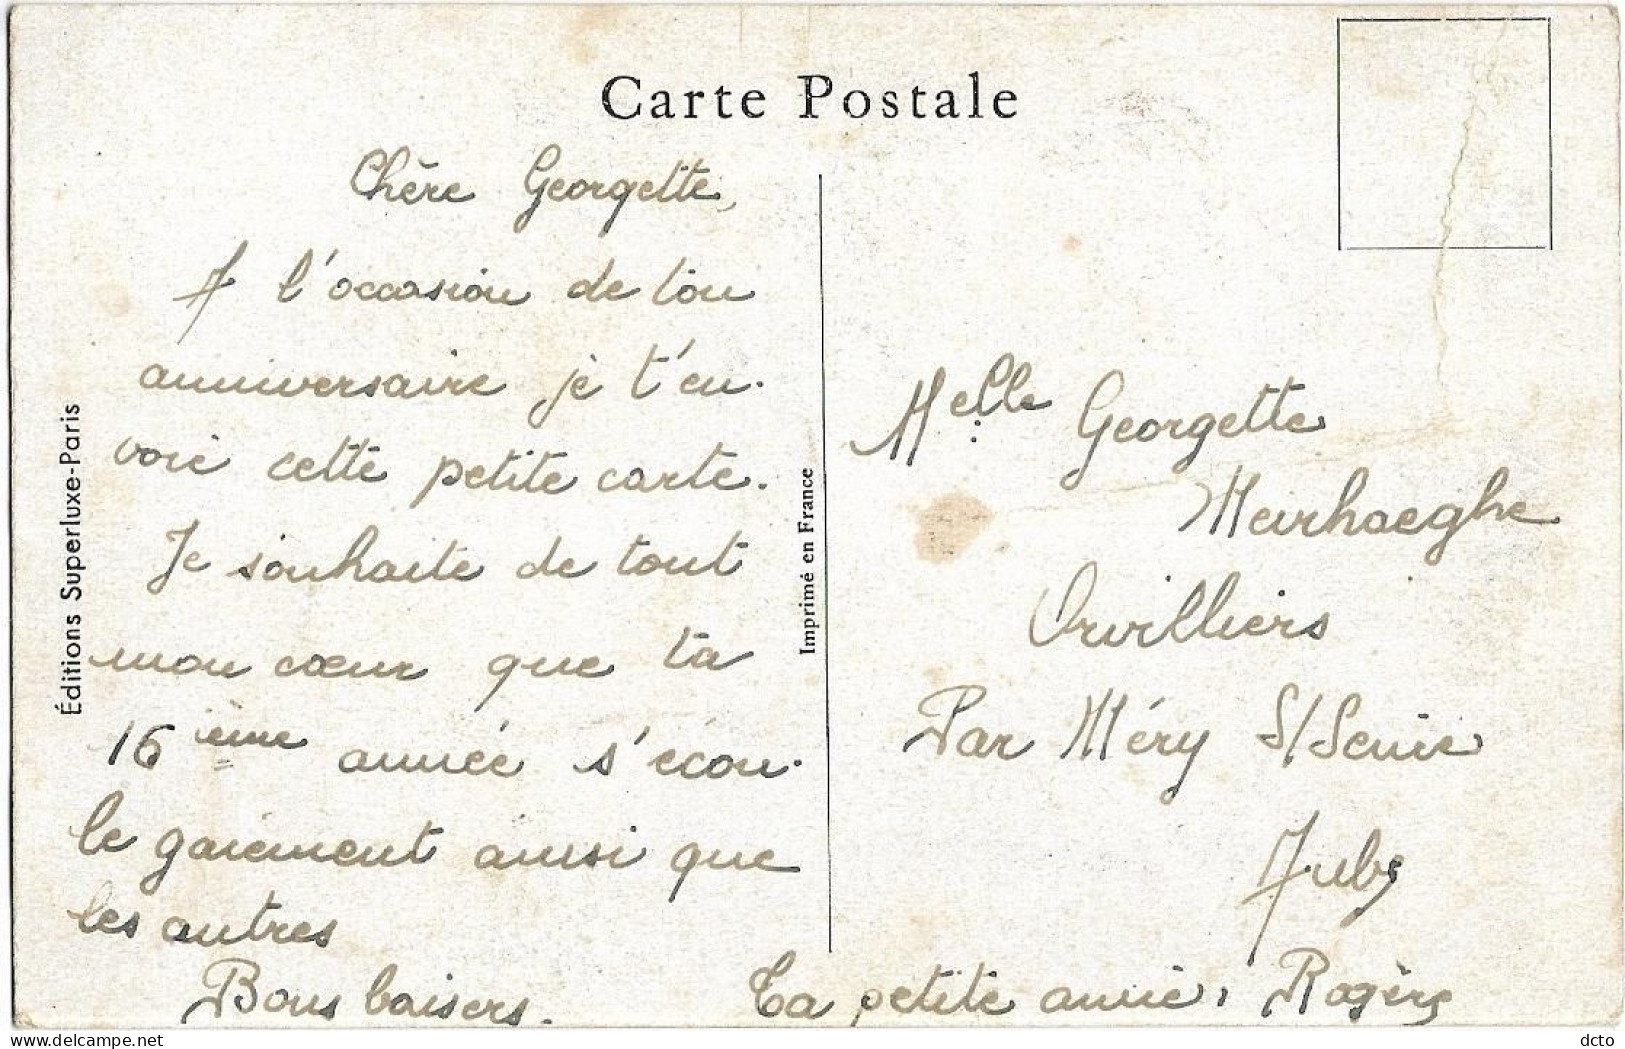 Carte Postale
Chère Georgette,
A l'occasion de ton
anniversaire je t'en-
voie cette petite carte.
Je souhaite de tout
mon cœur que ta
16ème année s'écou-
le gaiement ainsi que
les autres
Bons baisers.
Ta petite amie, Rogère
Melle Georgette
Meirhaeghe
Orvilliers
Par Méry S/Seine
Aube
Éditions Superluxe-Paris
Imprimé en France
dcto